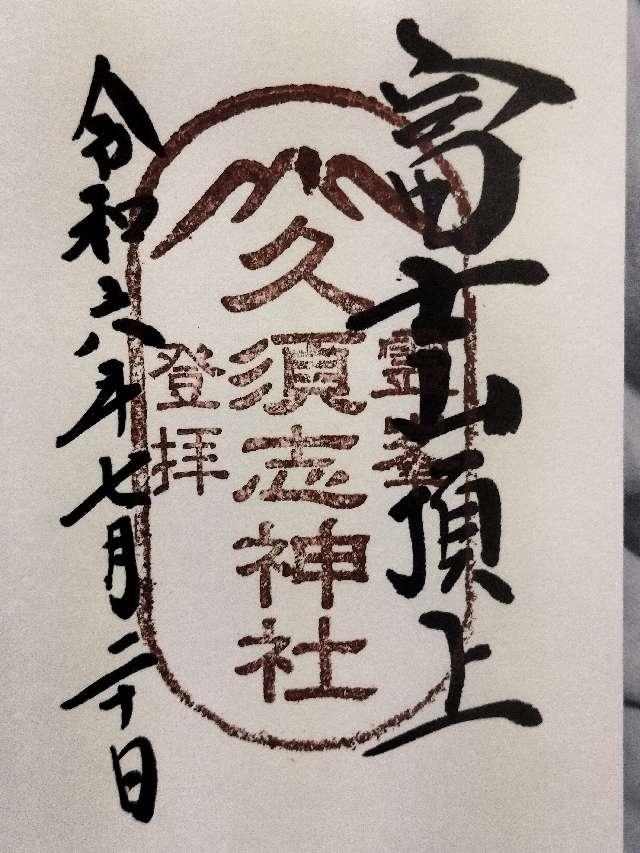 富士山頂上
靈峯
久須志神社
登拝
令和六年七月二十日